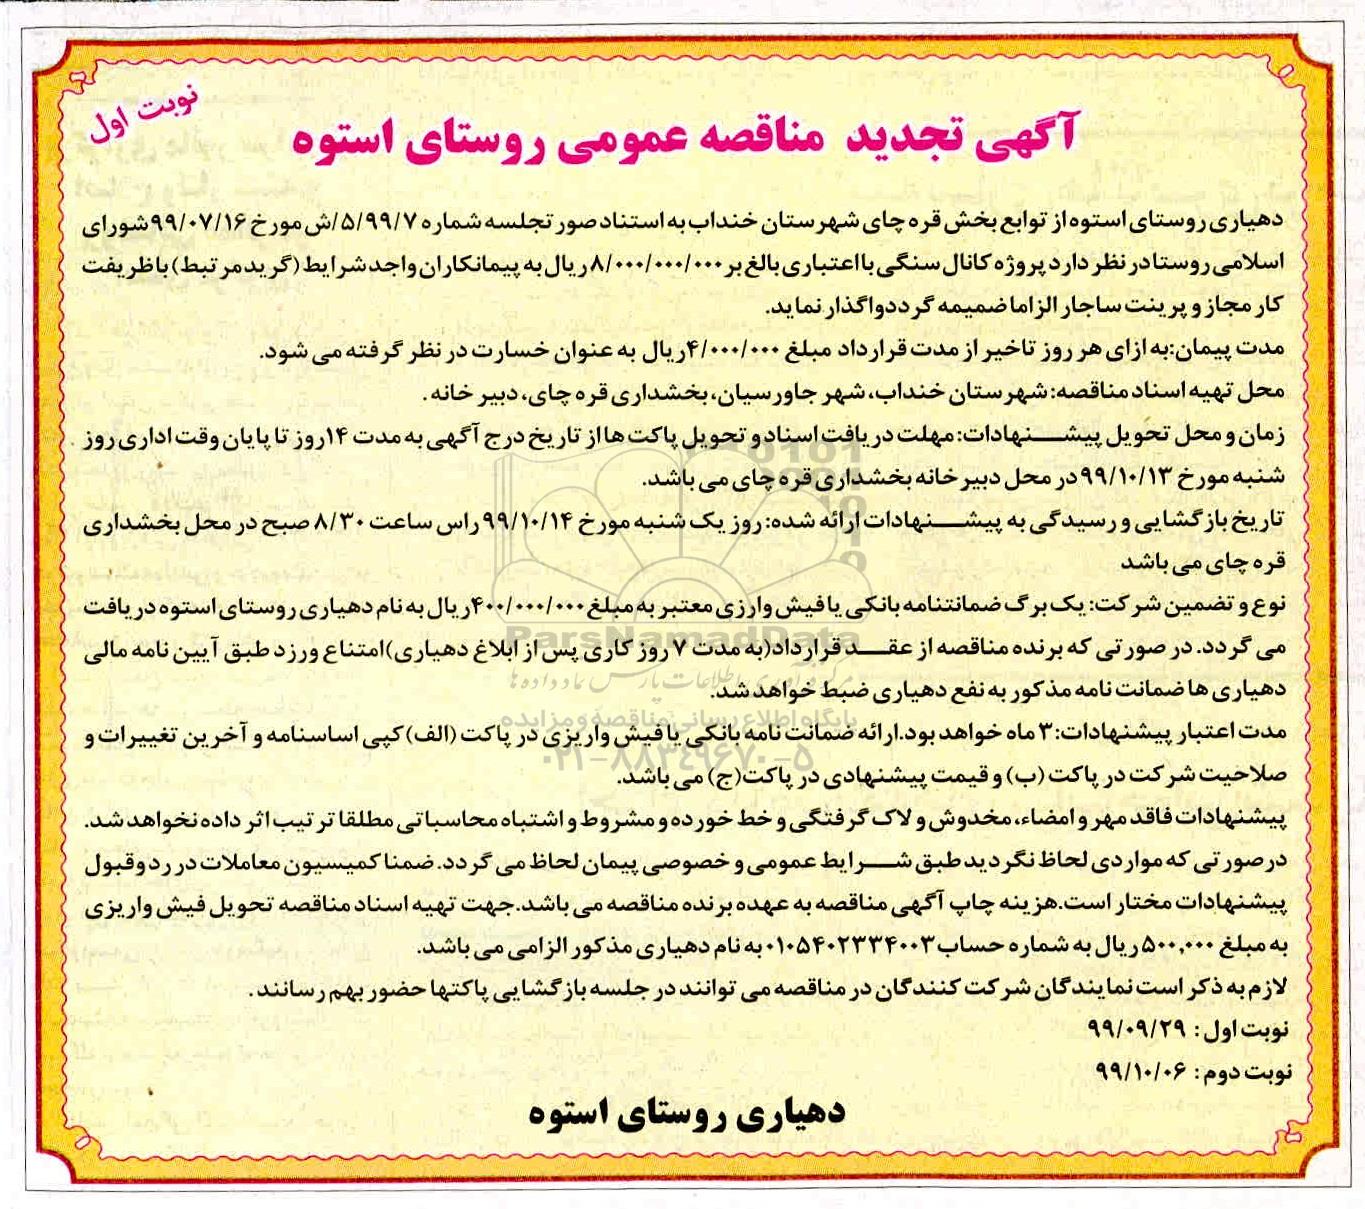 نوبت اول
آگهی تجدید مناقصه عمومی روستای استوه
دهیاری روستای استوه از توابع بخش قره چای شهرستان خنداب به استناد صورتجلسه شماره ۵/۹۹/۷/ش مورخ ۹۹/۰۷/۱۶ شورای
اسلامی روستا در نظر دارد پروژه کانال سنگی با اعتباری بالغ بر ۸/۰۰۰/۰۰۰/۰۰۰ ریال به پیمانکاران واجد شرایط (گرید مرتبط) با ظرفیت
کار مجاز و پرینت ساجار الزاما ضمیمه گردد واگذار نماید.
مدت پیمان: به ازای هر روز تاخیر از مدت قرارداد مبلغ ۴/۰۰۰/۰۰۰ ریال به عنوان خسارت در نظر گرفته می شود.
محل تهیه اسناد مناقصه: شهرستان خنداب، شهر جاورسیان، بخشداری قره چای، دبیر خانه .
زمان و محل تحویل پیشنهادات: مهلت دریافت اسناد و تحویل پاکت ها از تاریخ درج آگهی به مدت ۱۴ روز تا پایان وقت اداری روز
شنبه مورخ ۹۹/۱۰/۱۳ در محل دبیر خانه بخشداری قره چای می باشد.
تاریخ بازگشایی و رسیدگی به پیشنهادات ارائه شده: روز یک شنبه مورخ ۹۹/۱۰/۱۴ راس ساعت ۸/۳۰ صبح در محل بخشداری
قره چای می باشد
نوع و تضمین شرکت: یک برگ ضمانتنامه بانکی یا فیش وارزی معتبر به مبلغ ۴۰۰/۰۰۰/۰۰۰ ریال به نام دهیاری روستای استوه دریافت
می گردد. در صورتی که برنده مناقصه از عقد قرارداد (به مدت ۷ روز کاری پس از ابلاغ دهیاری) امتناع ورزد طبق آیین نامه مالی
دهیاری ها ضمانت نامه مذکور به نفع دهیاری ضبط خواهد شد.
مدت اعتبار پیشنهادات: ۳ ماه خواهد بود. ارائه ضمانت نامه بانکی یا فیش واریزی در پاکت (الف) کپی اساسنامه و آخرین تغییرات و
صلاحیت شرکت در پاکت (ب) و قیمت پیشنهادی در پاکت (ج) می باشد.
پیشنهادات فاقد مهر و امضاء، مخدوش و لاک گرفتگی و خط خورده و مشروط و اشتباه محاسباتی مطلقا ترتیب اثر داده نخواهد شد.
در صورتی که مواردی لحاظ نگردید طبق شرایط عمومی و خصوصی پیمان لحاظ می گردد. ضمنا کمیسیون معاملات در رد و قبول
پیشنهادات مختار است. هزینه چاپ آگهی مناقصه به عهده برنده مناقصه می باشد. جهت تهیه اسناد مناقصه تحویل فیش واریزی
به مبلغ ۵۰۰,۰۰۰ ریال به شماره حساب ۰۱۰۵۴۰۲۳۳۴۰۰۳ به نام دهیاری مذکور الزامی می باشد.
لازم به ذکر است نمایندگان شرکت کنندگان در مناقصه می توانند در جلسه بازگشایی پاکتها حضور بهم رسانند .
نوبت اول : ۹۹/۰۹/۲۹
نوبت دوم : ۹۹/۱۰/۰۶
دهیاری روستای استوه
ParsNamadData
پایگاه اطلاع رسانی مناقصه و مزایده
۰۲۱-۸۸۳۴۹۶۷۰-۵